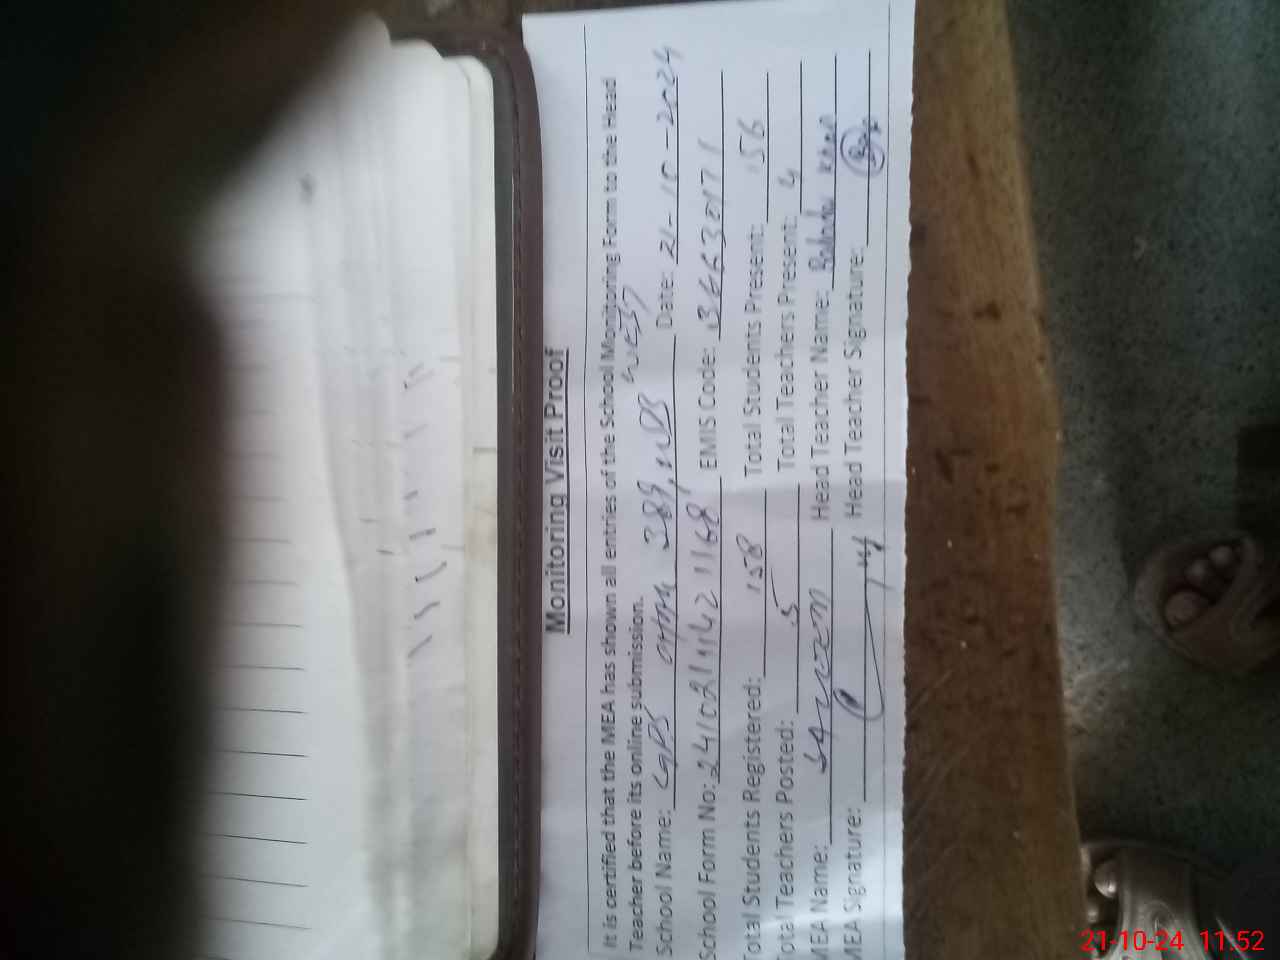 Monitoring Visit Proof
It is certified that the MEA has shown all entries of the School Monitoring Form to the Head
Teacher before its online submission.
School Name: GPS 389, WB West Date: 21-10-2024
School Form No: 24102111421168 EMIS Code:
Total Students Registered: 158 Total Students Present: 156
Total Teachers Posted: 5 Total Teachers Present: 4
MEA Name: Head Teacher Name: Khan
MEA Signature: Head Teacher Signature:
21-10-24 11:52